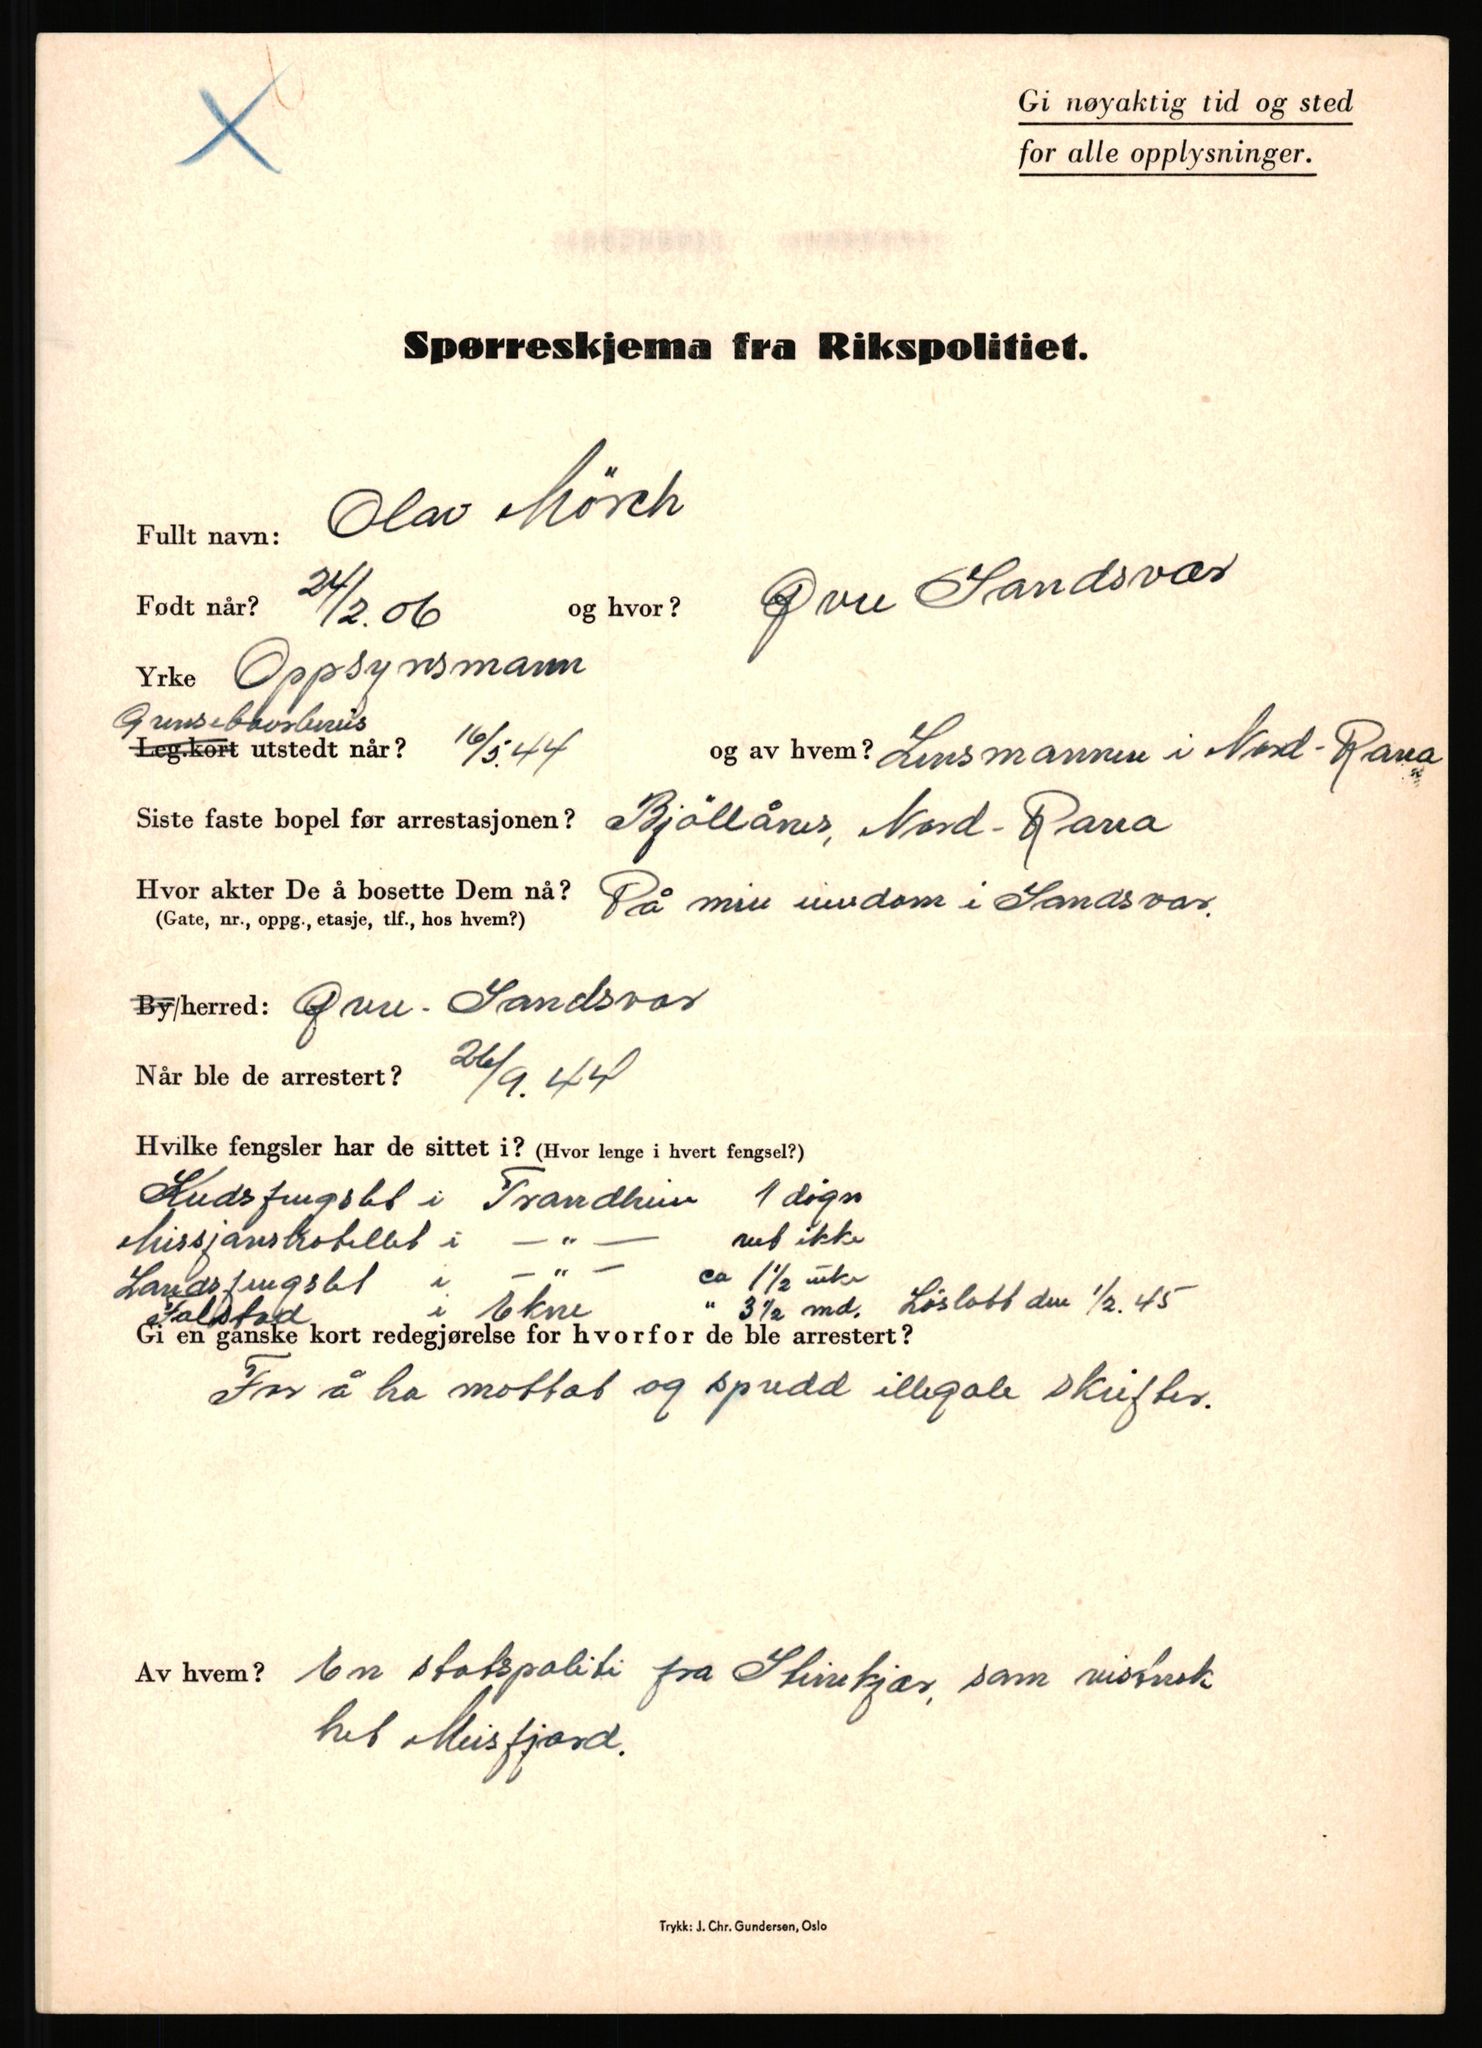 Gi nøyaktig tid og sted
for alle opplysninger.
Spørreskjema fra Rikspolitiet.
Fullt navn: Olav Mörch
Født når? 24/2.06 og hvor? Øvre Sandsvær
Yrke Oppsynsmann
Grenseboerbevis
Leg.kort utstedt når? 16/5.44 og av hvem? Lensmannen i Nord-Rana
Siste faste bopel før arrestasjonen? Bjöllånes, Nord-Rana
Hvor akter De å bosette Dem nå? På min eiendom i Sandsvær.
(Gate, nr., oppg., etasje, tlf., hos hvem?)
By/herred: Øvre-Sandsvær
Når ble de arrestert? 26/9.44
Hvilke fengsler har de sittet i? (Hvor lenge i hvert fengsel?)
Kredsfengslet i Trondheim 1 døgn
Missjonshotellet i — " — vet ikke
Landsfengslet i — " — ca 1 1/2 uke
Falstad i Ekne " 3 1/2 md. Löslatt den 1/2.45
Gi en ganske kort redegjørelse for hvorfor de ble arrestert?
For å ha mottat og spredd illegale skrifter.
Av hvem? En statspoliti fra Steinkjær, som visstnok
het Meisfjord.
Trykk: J. Chr. Gundersen, Oslo